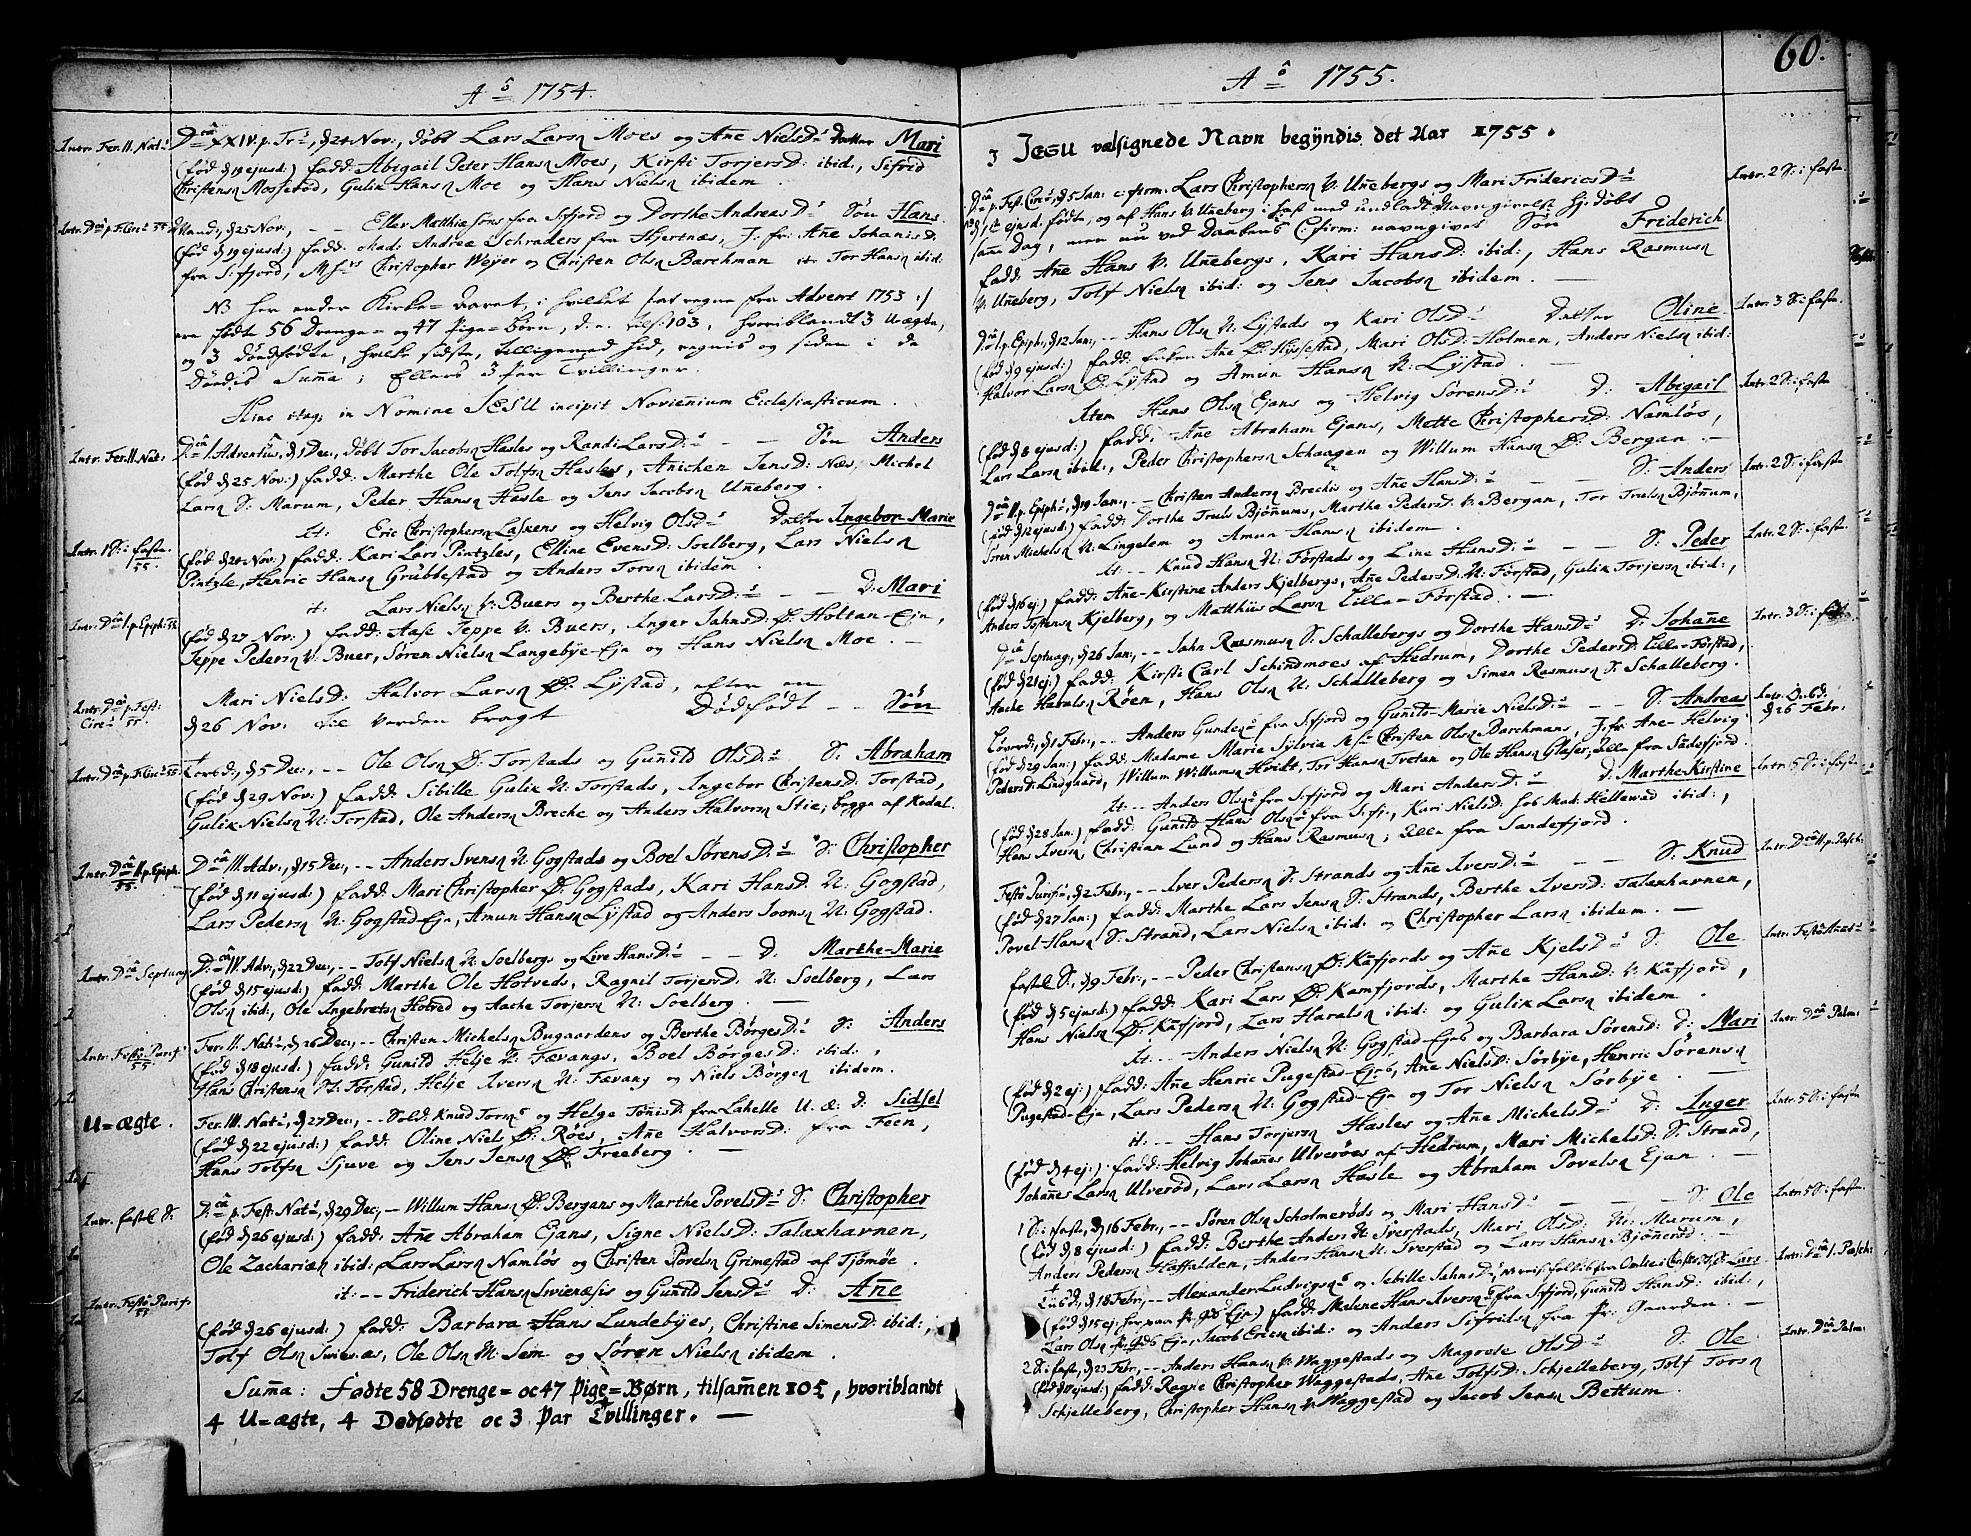 Aº 1754.
Intr. Fer. II. Nat:
Dca XXIV. p. Tr:, d. 24 Nov:, døbt Lars Larsn Moes og Ane NielsD: Datter Mari
(fød d. 19 ejusd:) fadd: Abigail Peter Hansn Moes, Kirsti TorjersD: ibid:, Sifrid
Christensn Mosserød, Gulik Hansn Moe og Hans Nielsn ibidem.
Mand:, d. 25 Nov:, -- Eller Matthiasons fra Sifjord og Dorthe AndreasD: Søn Hans
(fød d. 19 ejusd:) fadd: Mad: Andrea Schraders fra Hjertnæs, J: fr: Ane JohanisD:
fra Sifjord, Msrs Christopher Weyer og Christen Olsn Barchman it: Tor Hansn ibid:
NB her ender Kirke-Aaret, i hvilket (at regne fra Advent 1753:)
ere fødte 56 Drenge- og 47 Pige-Børn, d. e. tils: 103, hvoriblandt 3 Uægte,
og 3 Dødfødte, hvilke sidste, tilligemed hid, regnis og siden i de
Dødis Suma; Ellers 3 Par Tvillinger.
Hinc itaq; in Nomine JESU incipit Novienium Ecclesiasticum.
Intr. Fer. II. Nat:
Dca I. Adventus, d. 1 Dec:, døbt Tor Jacobsn Hasles og Randi LarsD: -- Søn Anders
(fød d. 25 Nov:) fadd: Marthe Ole Tolfsn Hasles, Anichen JensD: Næs, Michel
Larsn S: Marum, Peder Hansn Hasle og Jens Jacobsn Uneberg.
Intr. 1 S: i faste 55.
It: Eric Christophersn Laskens og Helvig OlsD: Datter Ingebor-Marie
(fød d. 24 Nov:) fadd: Kari Lars Pintzles, Elline EvensD: Soelberg, Lars Nielsn
Pintzle, Henric Hansn Grubbestad og Anders Torsn ibidem.
it: Lars Nielsn V: Buers og Berthe LarsD: -- D: Mari
(fød d. 27 Nov:) fadd: Aase Jeppe V: Buers, Inger JahnsD: Ø: Holtan-Eje,
Jeppe Pedersn V: Buer, Søren Nielsn Langebye-Eje og Hans Nielsn Moe.
Mari NielsD: Halvor Larsn Ø: Lystad, efter en
d. 26 Nov: til Verden bragt Dødfødt -- Søn
Løverd:, d. 5 Dec:, -- Ole Olsn Ø: Torstads og Gunild OlsD: S: Abraham
(fød d. 29 Nov:) fadd: Sibille Gulik N: Torstads, Ingebor ChristensD: Torstad,
Gulik Nielsn N: Torstad, Ole Andersn Breche og Anders Halvorsn Stie, begge af Kodal.
Dca III. Adv:, d. 15 Dec:, -- Anders Svensn N: Gogstads og Boel SørensD: S: Christopher
(fød d. 11 ejusd:) fadd: Mari Christopher Ø: Gogstads, Kari HansD: N: Gogstad,
Lars Pedersn N: Gogstad-Eje, Amun Hansn Lystad og Anders Joonsn N: Gogstad.
Intr. Dca Septuag:
Dca IV. Adv:, d. 22 Dec:, -- Tolf Nielsn N: Soelbergs og Live HansD: -- D: Marthe-Marie
(fød d. 15 ejusd:) fadd: Marthe Ole Hotveds, Ragnil TorjersD: N: Soelberg, Lars
Olsn ibid:, Ole Ingebretsn Hotved og Aache Torjersn N: Soelberg.
Intr. Festo Purif: 55.
Fer: II. Nat:, d. 26 Dec:, -- Christen Michelsn Bugaardens og Berthe BørgesD: S: Anders
(fød d. 18 ejusd:) fadd: Gunild Helje N: Fævangs, Boel BørgesD: ibid:,
Hans Christensn N: Torstad, Helje Iversn N: Fævang og Niels Børgesn ibidem.
U=ægte.
Fer: III. Nat:, d. 27 Dec:, -- Sold: Knud Torsn og Helge TønisD: fra Lahelle U. æ: D: Sidsel
(fød d. 22 ejusd:) fadd: Oline Niels Ø: Røes, Ane HalvorsD: fra Feen,
Hans Tolfsn Sjuve og Jens Jensn Ø: Freeberg.
Intr. fastel S:
Dca p. Fest: Nat:, d. 29 Dec:, -- Willum Hansn Ø: Bergans og Marthe PovelsD: S: Christopher
(fød d. 26 ejusd:) fadd: Ane Abraham Ejans, Signe NielsD: Talaxhavnen,
Ole Zachariæn ibid:, Lars Larsn Namløs og Christen Povelsn Grimestad af Tjømøe.
Intr. Festo Purif: 55
it: -- Friderich Hansn Svienæsis og Gunild JensD: D: Ane
(fød d. 26 ejusd:) fadd: Barbara Hans Lundebyes, Christine SimensD: ibid:,
Tolf Olsn Svienæs, Ole Olsn N: Sem og Søren Nielsn ibidem.
Suma: Fødte 58 Drenge= oc 47 Pige=Børn, tilsamen 105, hvoriblandt
4 U=ægte, 4 Dødfødte oc 3 Par Tvillinger. —
Aº 1755.
60.
I JESU velsignede Navn begyndis det Aar 1755.
Intr. 2 S: i faste.
Dca p. Fest. Circ:, d. 5 Jan: c: firm: Lars Christophersn V: Unebergs og Mari FridericsD:
fødte, og af Hans V: Uneberg i hast med undladt Navngivelse Hj: døbt
same Dag, men nu ved Daabens C: firm: navngivet Søn Friderich
fadd: Ane Hans V: Unebergs, Kari HansD: ibid:, Hans Rasmusn
V: Uneberg, Tolf Nielsn ibid: og Jens Jacobsn ibidem.
Intr. 3 S: i faste.
Dca I. p. Epiph:, d. 12 Jan:, -- Hans Olsn N: Lystads og Kari OlsD: Datter Oline
(fød d. 9 ejusd:) fadd: Enken Ane Ø: Hyssestad, Mari OlsD: Holmen, Anders Nielsn ibid:
Halvor Larsn Ø: Lystad og Amun Hansn N: Lystad.
Intr. 2 S: i faste
Item Hans Olsn Ejans og Helvig SørensD: D: Abigail
(fød d. 8 ejusd:) fadd: Ane Abraham Ejans, Mette ChristophersD: Namløs,
Lars Larsn ibid:, Peder Christophersn Schaagen og Willum Hansn Ø: Bergan.
Intr. 2 S: i faste
Dca II. p. Epiph:, d. 19 Jan:, -- Christen Andersn Breches og Ane HansD: -- S: Anders
(fød d. 12 ejusd:) fadd: Dorthe Truls Bjønnums, Marthe PedersD: V: Bergan, Tor Trulsn Bjønnum,
Søren Michelsn N: Lingelem og Amun Hansn ibidem.
Intr. 2 S: i faste
It: -- Knud Hansn N: Førstads og Line HansD: -- S: Peder
(fød d. 16 ej:) fadd: Ane-Kirstine Anders Kjelbergs, Ane PedersD: N: Førstad, Gulik Torjersn ibid:,
Anders Kjelberg, og Matthias Larsn Lilla-Førstad.
Intr. 3 S: i faste
Dca Septuag:, d. 26 Jan:, -- Jahn Rasmusn S: Schallebergs og Dorthe HansD: D: Johane
(fød d. 21 ej:) fadd: Kirsti Carl Schindmoes af Hedrum, Dorthe PedersD: Lilla-Førstad,
Aache Haralsn Røen, Hans Olsn N: Schalleberg og Simen Rasmusn S: Schalleberg.
d. 26 Febr:
Løverd:, d. 1 Febr:, -- Anders Gundersn fra Sifjord og Gunild-Marie NielsD: -- S: Andreas
(fød d. 29 Jan:) fadd: Madame Marie Sylvia Msr Christen Olsn Barchmans, J: fr: Ane-Helvig
PedersD: Lindgaard, Willum Willumsn Hvidt, Tor Hansn Tvetan og Ole Hansn Glaser, alle fra Sandefjord.
Intr. 5 S: i faste
It: -- Anders Olsn fra Sifjord og Mari AndersD: D: Marthe-Kirstine
(fød d. 28 Jan:) fadd: Gunild Hans Olsn fra Sifj:, Kari NielsD: hos Mad: Hellewad ibid:,
Hans Iversn, Christian Lund og Hans Rasmusn, alle fra Sandefjord.
Intr. Dca II. p. Pasch:
Festo Purif:, d. 2 Febr:, -- Iver Pedersn S: Strands og Ane IversD: -- S: Knud
(fød d. 27 Jan:) fadd: Marthe Lars Jensn S: Strands, Berthe IversD: Talaxhavnen,
Povel Hansn S: Strand, Lars Nielsn ibid: og Christopher Larsn ibidem.
Fastel S:, d. 9 Febr:, -- Peder Christensn Ø: Kafjords og Ane KjelsD: S: Ole
(fød d. 5 ejusd:) fadd: Kari Lars Ø: Kamfjords, Marthe HansD: V: Kafjord,
Hans Nielsn Ø: Kafjord, Lars Haralsn ibid: og Gulik Larsn ibidem.
Intr. Dca Palm:
It: -- Anders Nielsn N: Gogstad-Ejes og Barbara SørensD: D: Mari
(fød d. 2 ej:) fadd: Ane Henric Pugestad-Ejes, Ane NielsD: Sørbye, Henric Sørensn
Pugestad-Eje, Lars Pedersn N: Gogstad-Eje og Tor Nielsn Sørbye.
Intr. 5 S: i faste
it: -- Hans Torjersn Hasles og Ane MichelsD: D: Inger
(fød d. 4 ej:) fadd: Helvig Johanes Ulverøes af Hedrum, Mari MichelsD: S: Strand,
Johanes Larsn Ulverød, Lars Larsn Hasle og Abraham Povelsn Ejan.
Intr. 5 S: i faste
1 S: i faste, d. 16 Febr:, -- Søren Olsn Scholmerøds og Mari HansD: -- S: Ole
(fød d. 8 ejusd:) fadd: Berthe Anders N: Sverstads, Mari OlsD: N: Marum,
Anders Pedersn Haffalden, Anders Hansn N: Sverstad og Lars Hansn Bjønerød.
Intr. Dca I. Pasch:
d. 18 Febr:, -- Alexander Ludvigsn og Sebille JahnsD: D: Lars
(fød d. 15 ej:) fadd: Malene Hans Iversn fra Sifjord, Gunild HansD: ibid:,
Lars Olsn Eje, Jacob Ericsn ibid: og Anders Sifridsn fra Pr: Gaarden.
Intr. Dca Palm:
2 S: i faste, d. 23 Febr:, -- Anders Hansn V: Waggestads og Magrete OlsD: S: Ole
fadd: Ragne Christopher Waggestads, Ane TolfsD: Schjelleberg, Tolf Torsn
Schjelleberg, Christopher Hansn V: Waggestad og Jacob Jensn Bettum.